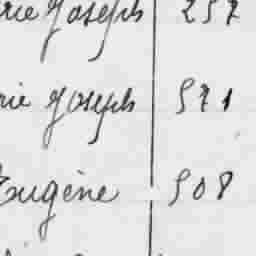 rie Joseph 257
rie Joseph 571
Eugène 508